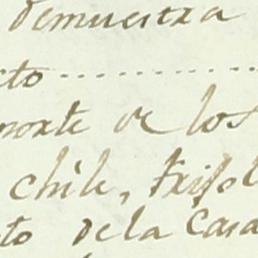 demuestra
cto ..........
norte de los
chile, frisol
to de la Casa